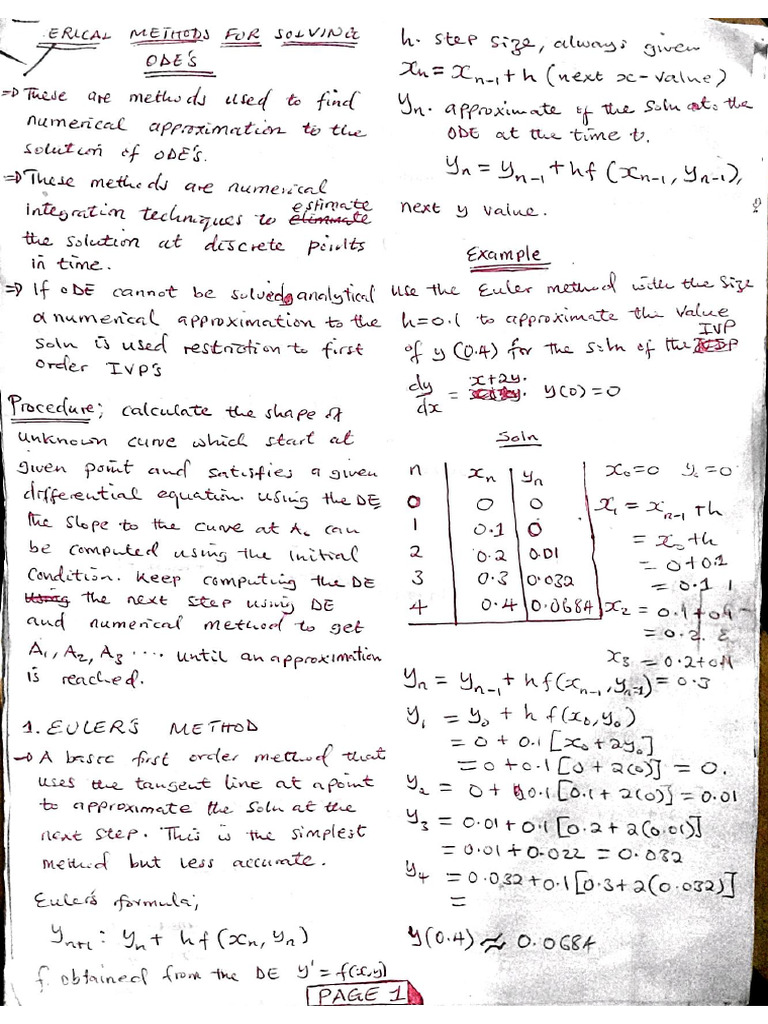 ERICAL METHODS FOR SOLVING
ODE'S
⇒ These are methods used to find
numerical approximation to the
solution of ODE's.
⇒ These methods are numerical
estimate
integration techniques to eliminate
the solution at discrete points
in time.
⇒ If ODE cannot be solved analytical
a numerical approximation to the
soln is used restriction to first
order IVP's
Procedure; calculate the shape of
unknown curve which start at
given point and satisfies a given
differential equation. Using the DE
the slope to the curve at A₀ can
be computed using the initial
condition. Keep computing the DE
using the next step using DE
and numerical method to get
A₁, A₂, A₃ .... until an approximation
is reached.
1. EULER'S METHOD
→ A basic first order method that
uses the tangent line at a point
to approximate the soln at the
next step. This is the simplest
method but less accurate.
Euler's formula;
yₙ₊₁ : yₙ + hf(xₙ, yₙ)
f obtained from the DE y' = f(x,y)
h. step size, always given
xₙ = xₙ₋₁ + h (next x-value)
yₙ. approximate of the soln to the
ODE at the time t.
yₙ = yₙ₋₁ + hf (xₙ₋₁, yₙ₋₁),
next y value.
Example
Use the Euler method with the size
h=0.1 to approximate the value
IVP
of y(0.4) for the soln of the
dy/dx = x+2y. y(0) = 0
Soln
n xₙ yₙ
0 0 0
1 0.1 0
2 0.2 0.01
3 0.3 0.032
4 0.4 0.0684
x₀=0 y₀=0
x₁ = xₙ₋₁ + h
= x₀ + h
= 0+0.1
= 0.1
x₂ = 0.1+0.1
= 0.2
x₃ = 0.2+0.1
= 0.3
yₙ = yₙ₋₁ + hf(xₙ₋₁, yₙ₋₁)
y₁ = y₀ + hf(x₀, y₀)
= 0 + 0.1[x₀+2y₀]
= 0+0.1[0+2(0)] = 0.
y₂ = 0 + 0.1[0.1+2(0)] = 0.01
y₃ = 0.01+0.1[0.2+2(0.01)]
= 0.01+0.022 = 0.032
y₄ = 0.032+0.1[0.3+2(0.032)]
=
y(0.4) ≈ 0.0684
PAGE 1